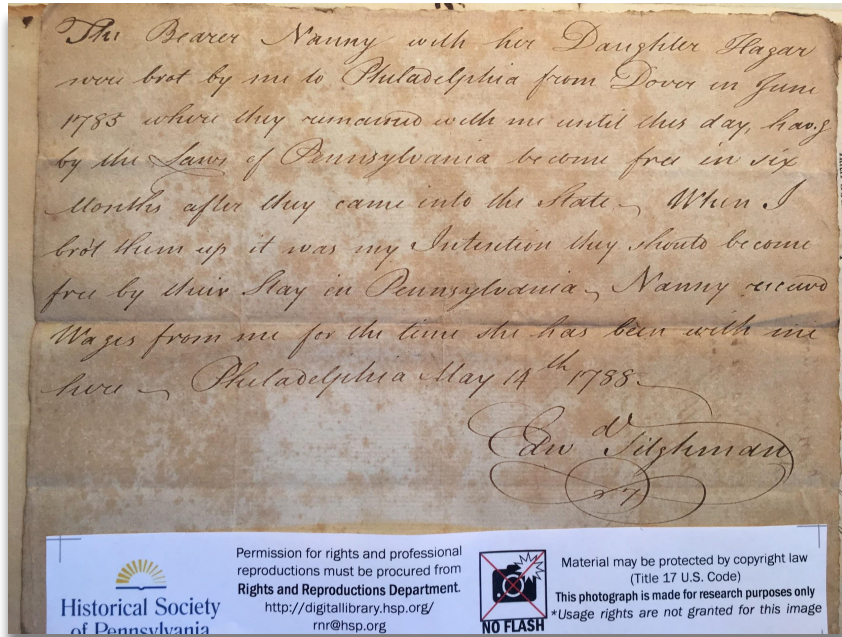 The Bearer Nanny with her Daughter Hagar
were brot by me to Philadelphia from Dover in June
1785 where they remained with me until this day, hav.g
by the Laws of Pennsylvania become free in six
Months after they came into the State – When I
bro't them up it was my Intention they should become
free by their Stay in Pennsylvania – Nanny receivd
Wages from me for the time she has been with me
here – Philadelphia May 14th 1788.
Edwd Tilghman
Historical Society
of Pennsylvania
Permission for rights and professional
reproductions must be procured from
Rights and Reproductions Department.
http://digitallibrary.hsp.org/
rnr@hsp.org
NO FLASH
Material may be protected by copyright law
(Title 17 U.S. Code)
This photograph is made for research purposes only
*Usage rights are not granted for this image